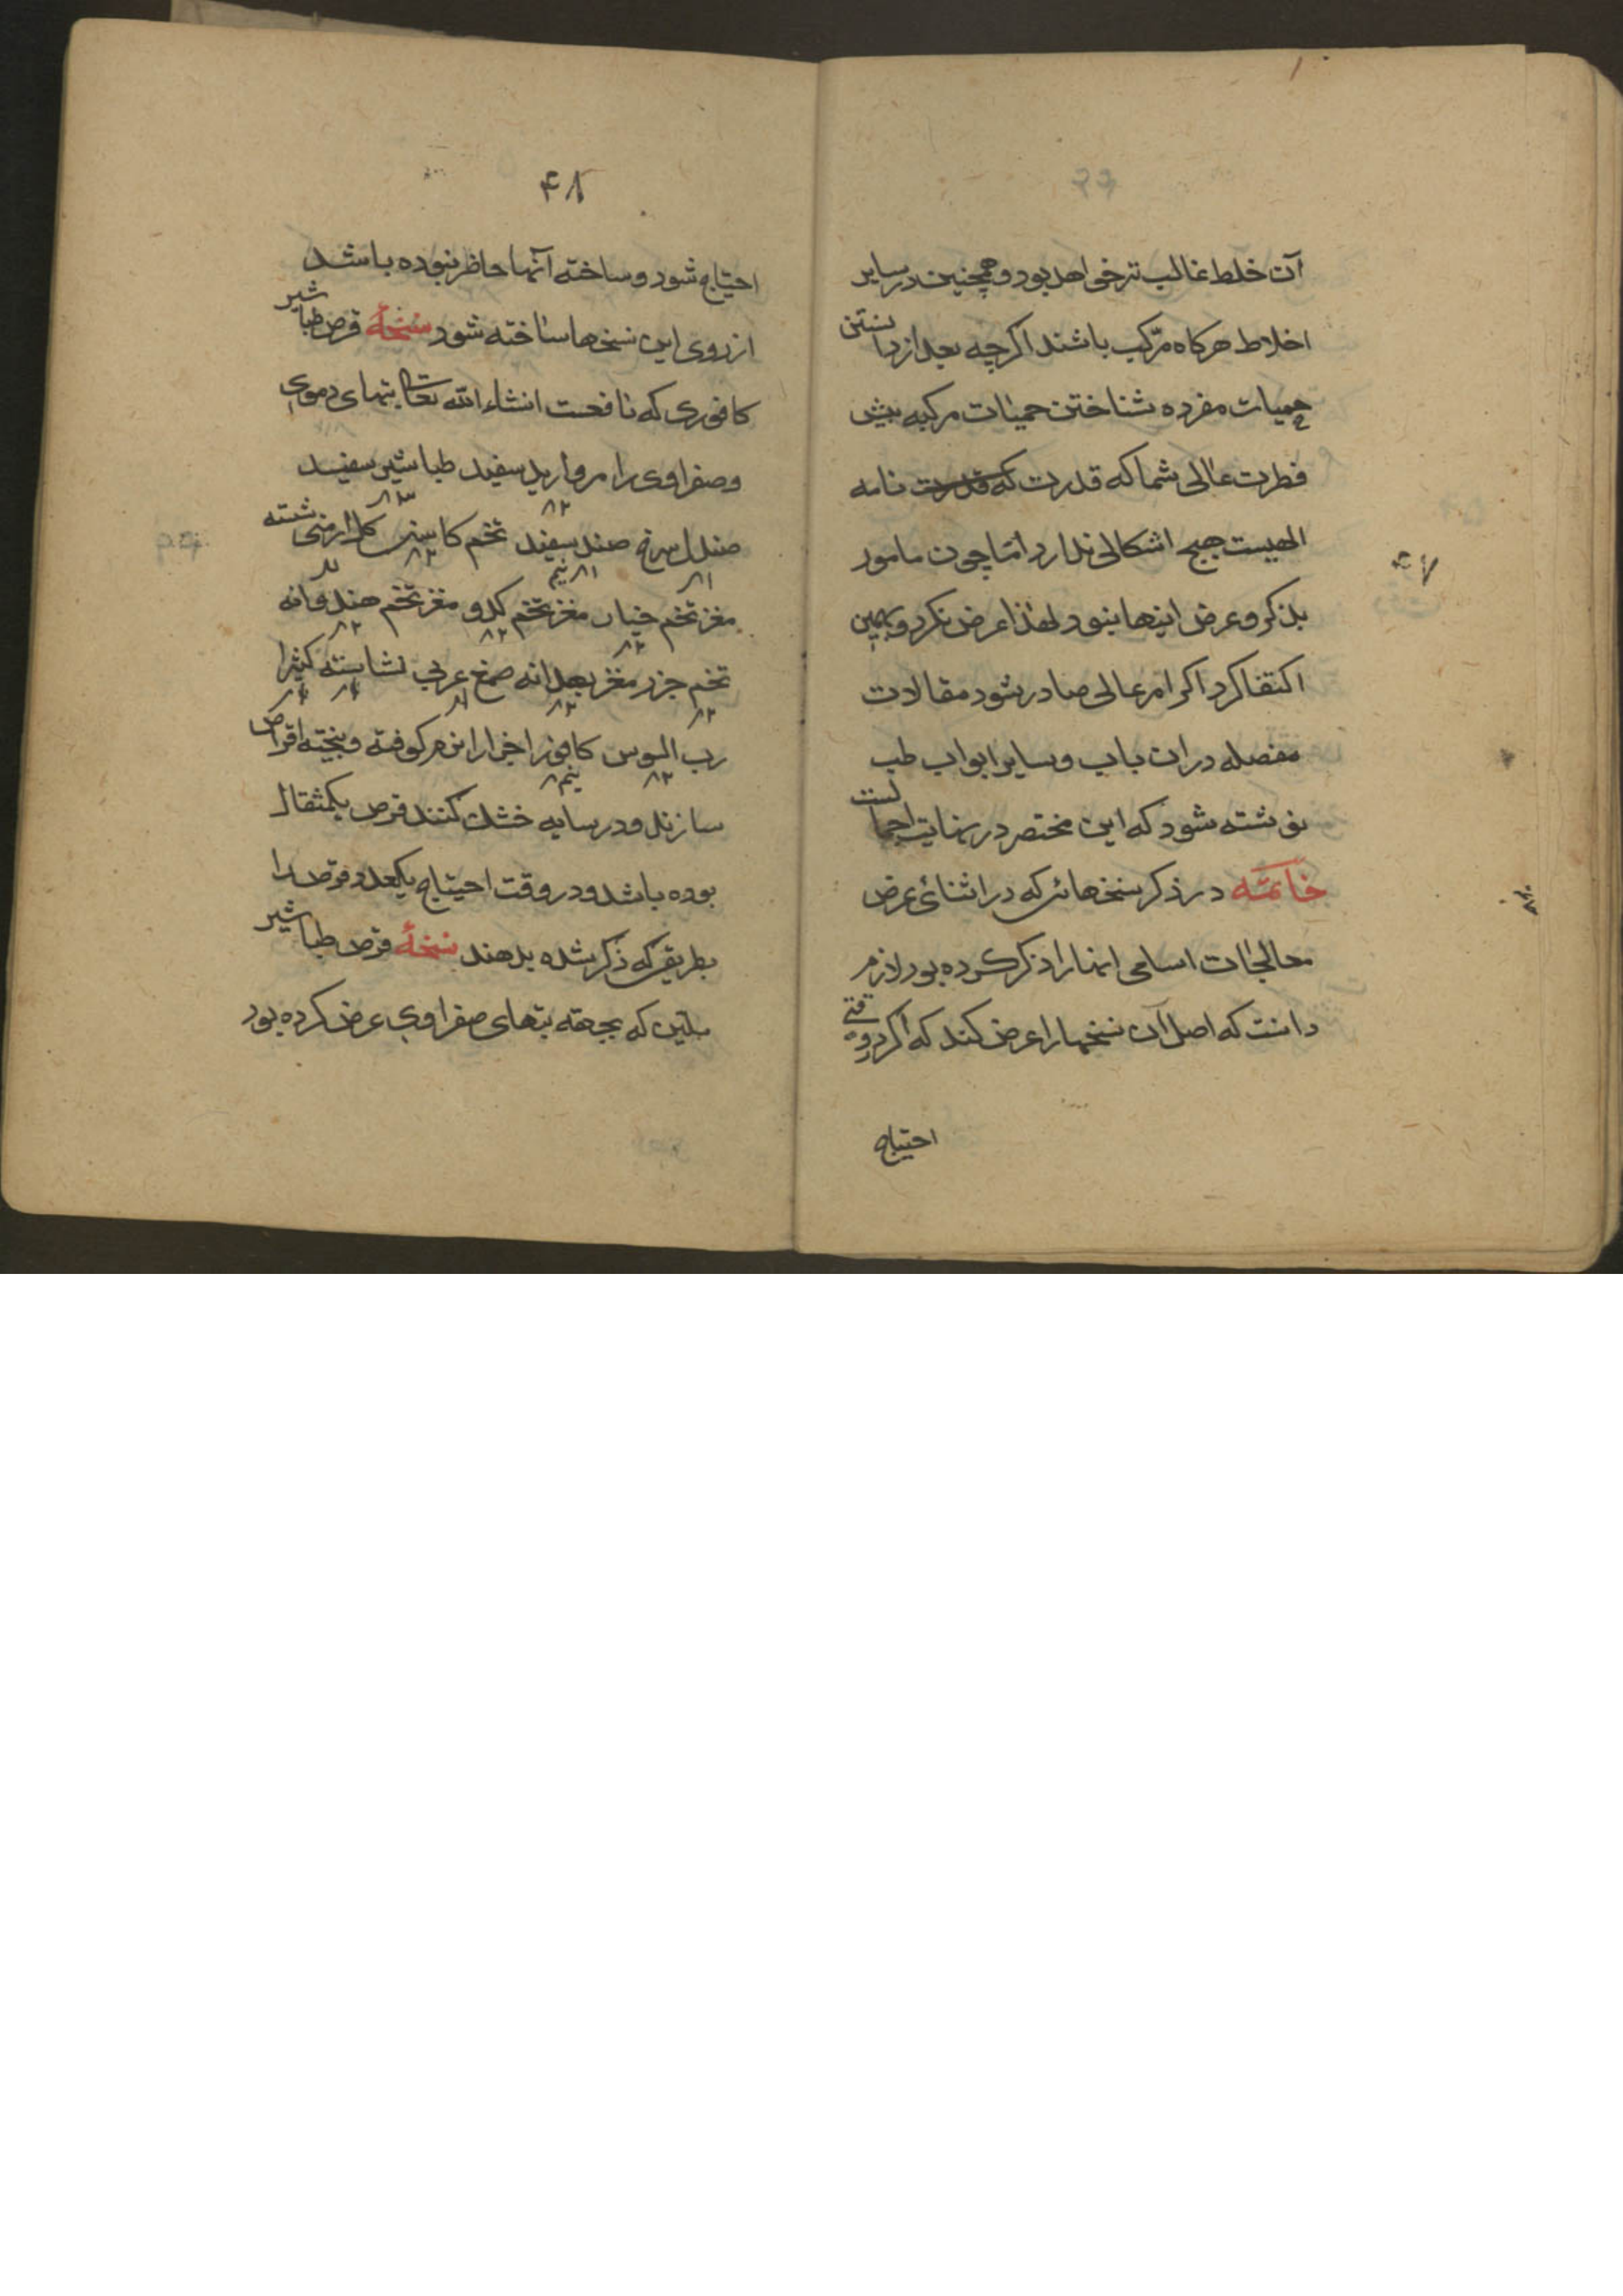 آن خلط غالب تر خواهد بود و همچنین در سایر
اخلاط هرکاه مرّکب باشند اکرچه بعد از دانستن
حمیات مفرده شناختن حمیات مرکبه پیش
فطرت عالی شما که قدرت که قدرت نامه
الهیست هیچ اشکالی ندارد امّا چون مامور
بذکر و عرض اینها نبود لهذا عرض نکرد و بهمین
اکتفا کرد اکر امر عالی صادر شود مقالات
مفصله در ان باب و سایر ابواب طب
نوشته شود که این مختصر در نهایت اجمالست
خاتمه در ذکر نسخهائی که در اثنائ عرض
معالجات اسامی انها را ذکر کرده بود لازم
دانست که اصل آن نسخها را عرض کند که اکر وقتی
احتیاج
۴۷
۴۸
احتیاج شود و ساخته آنها حاظر نبوده باشد
از روی این نسخها ساخته شود نسخهٔ قرص طباشیر
کافوری که نافعست انشاء الله تعالی تبهای دموی
و صفراوی را مروارید سفید طباشیر سفید
۲ ۳
صندل سرخ صندل سفید تخم کاسنی کل ارمنی شسته
۱ ۱ نیم ۲
مغز تخم خیار مغز تخم کدو مغز تخم هندوانه
۲ ۲ ۲
تخم جزر مغز بهدانه صمغ عربی نشاسته کثیرا
۲ ۲ ۱ ۴ ۴
رب السوس کافور اجزا را نرم کوفته و بیخته اقراص
۲ نیم
سازند و در سایه خشک کنند قرص یکمثقال
بوده باشد و در وقت احتیاج یکعدد قرص را
بطریقی که ذکر شده بدهند نسخهٔ قرص طباشیر
ملین که بجهته تبهای صفراوی عرض کرده بود